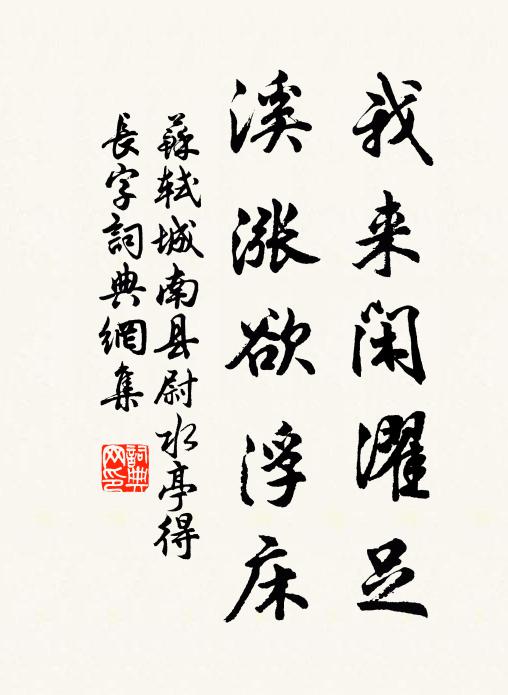 我来闲濯足
溪涨欲浮床
蘇轼城南县尉水亭得
長字詞典網集
詞典
网印